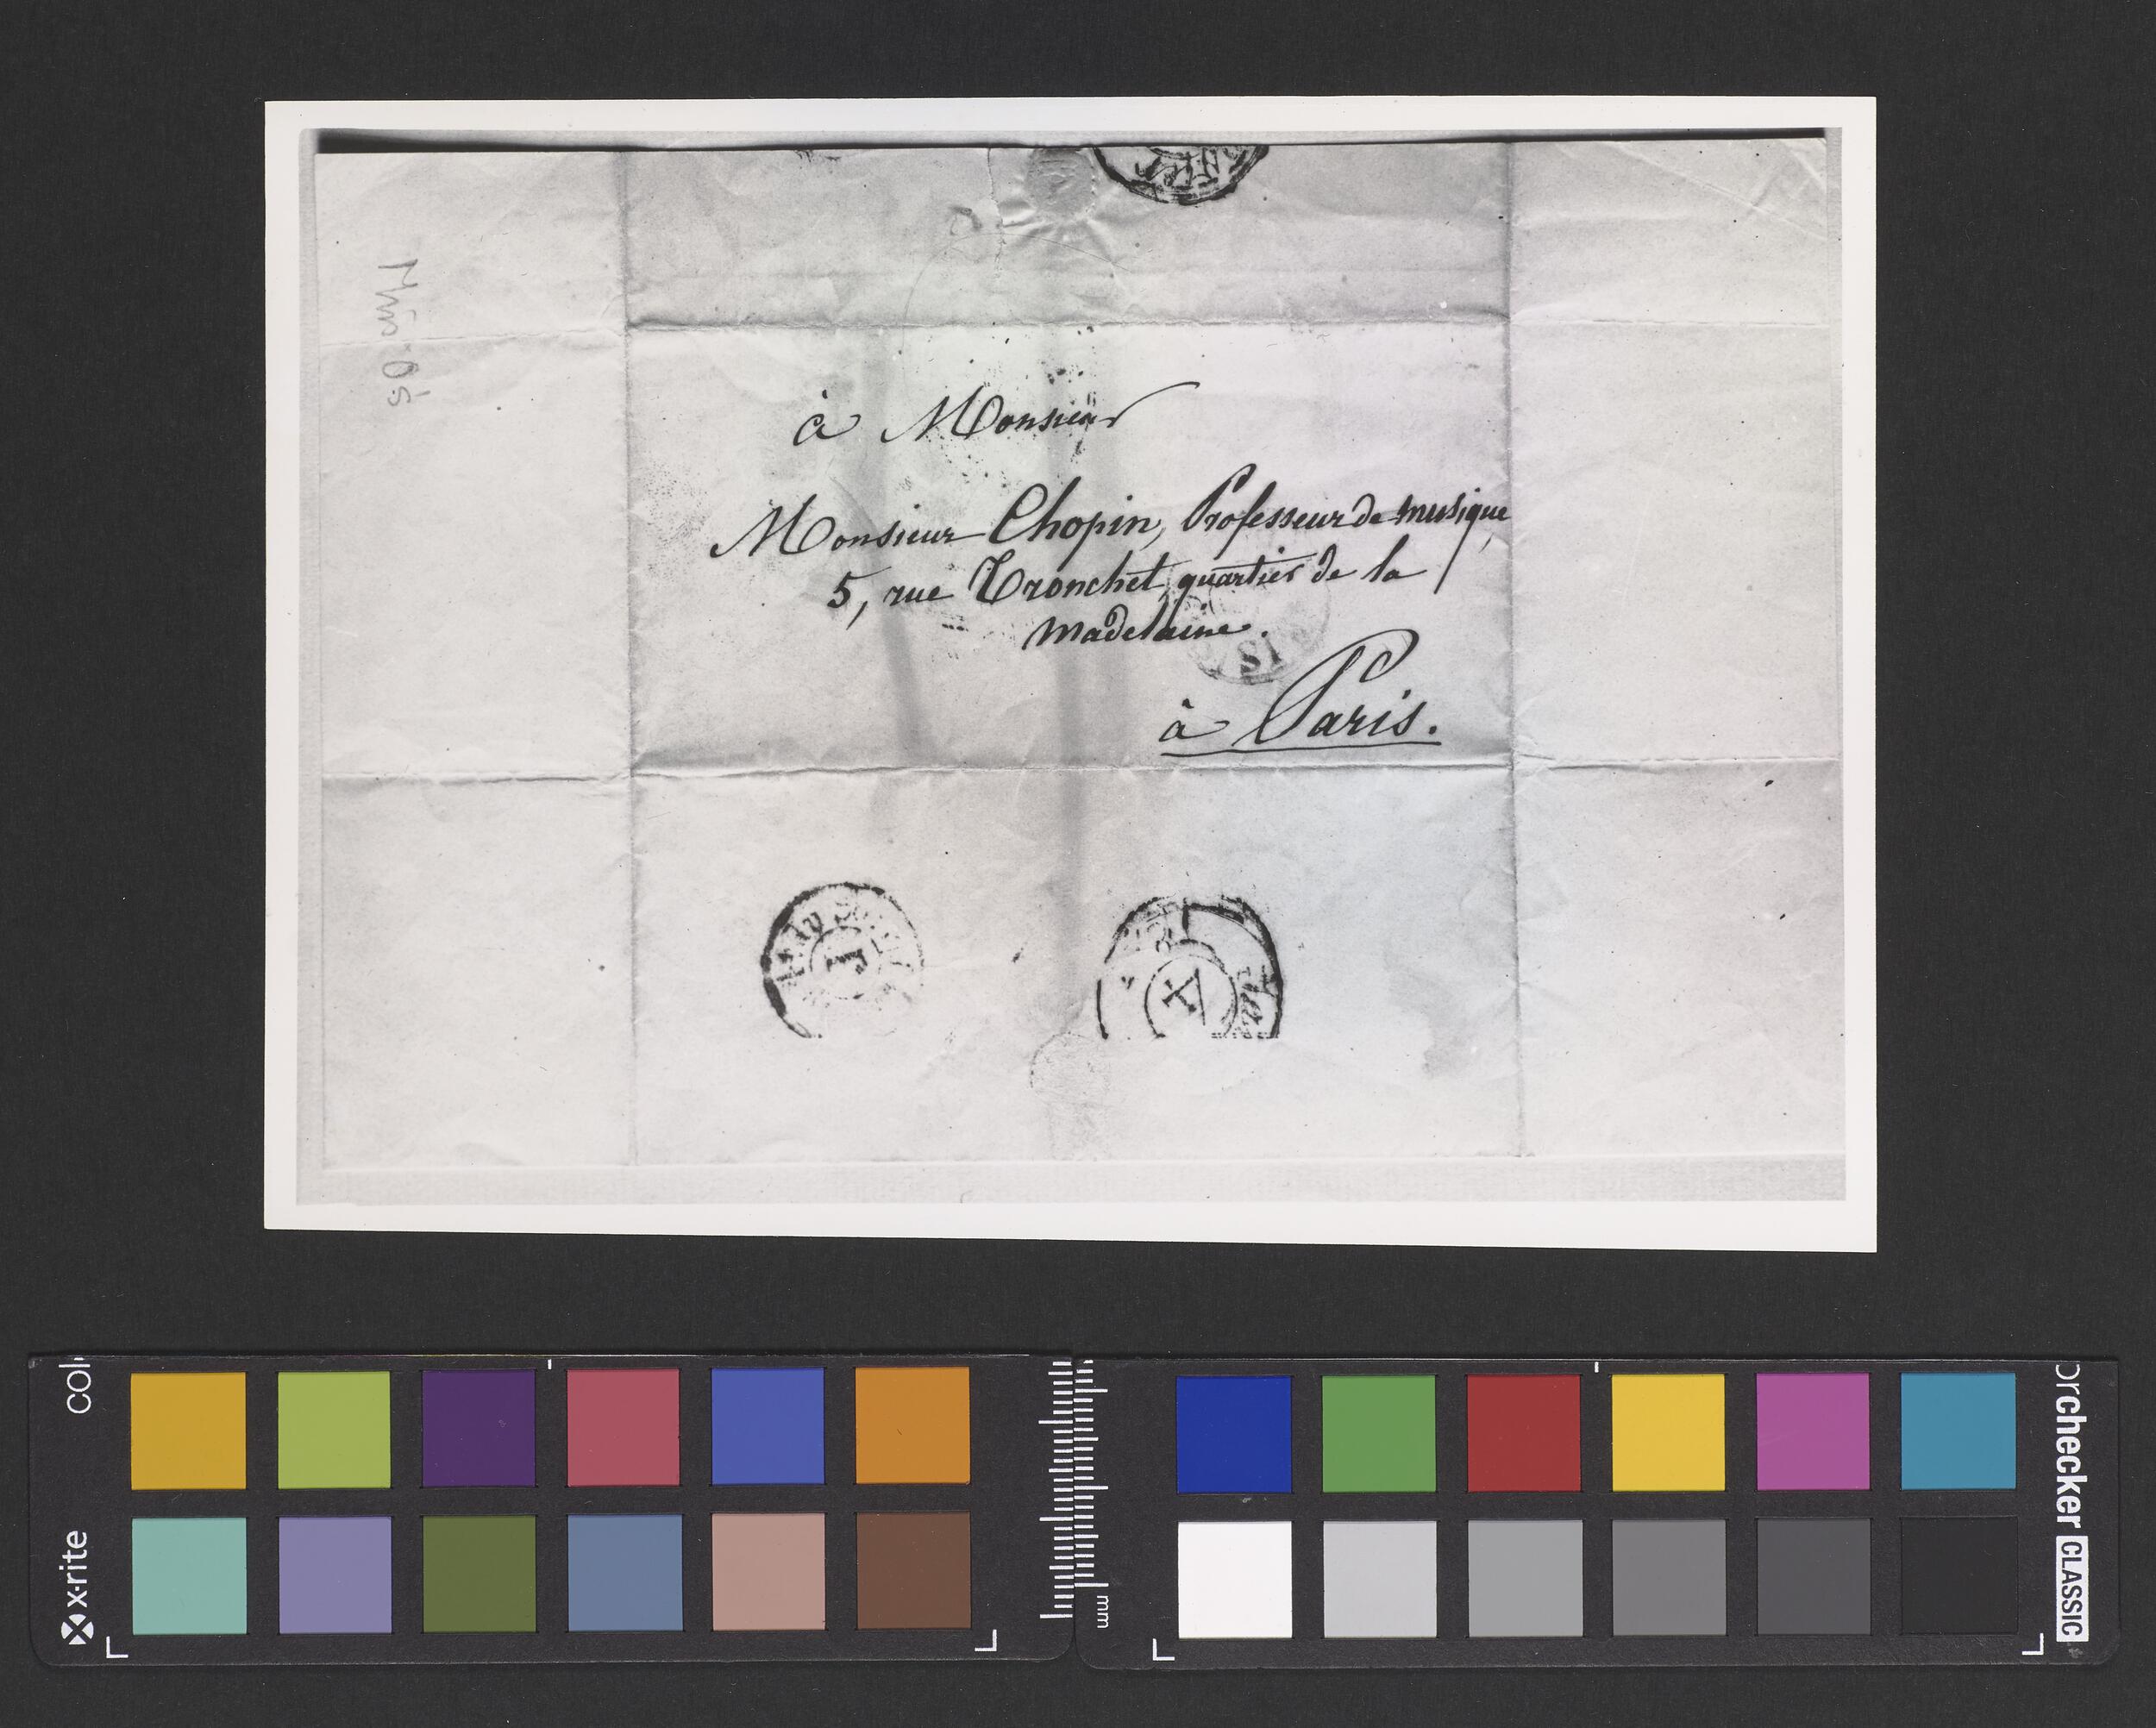 à Monsieur
Monsieur Chopin, Professeur de musique,
5, rue Tronchet, quartier de la
Madelaine.
à Paris.
x-rite
mm
orchecker CLASSIC